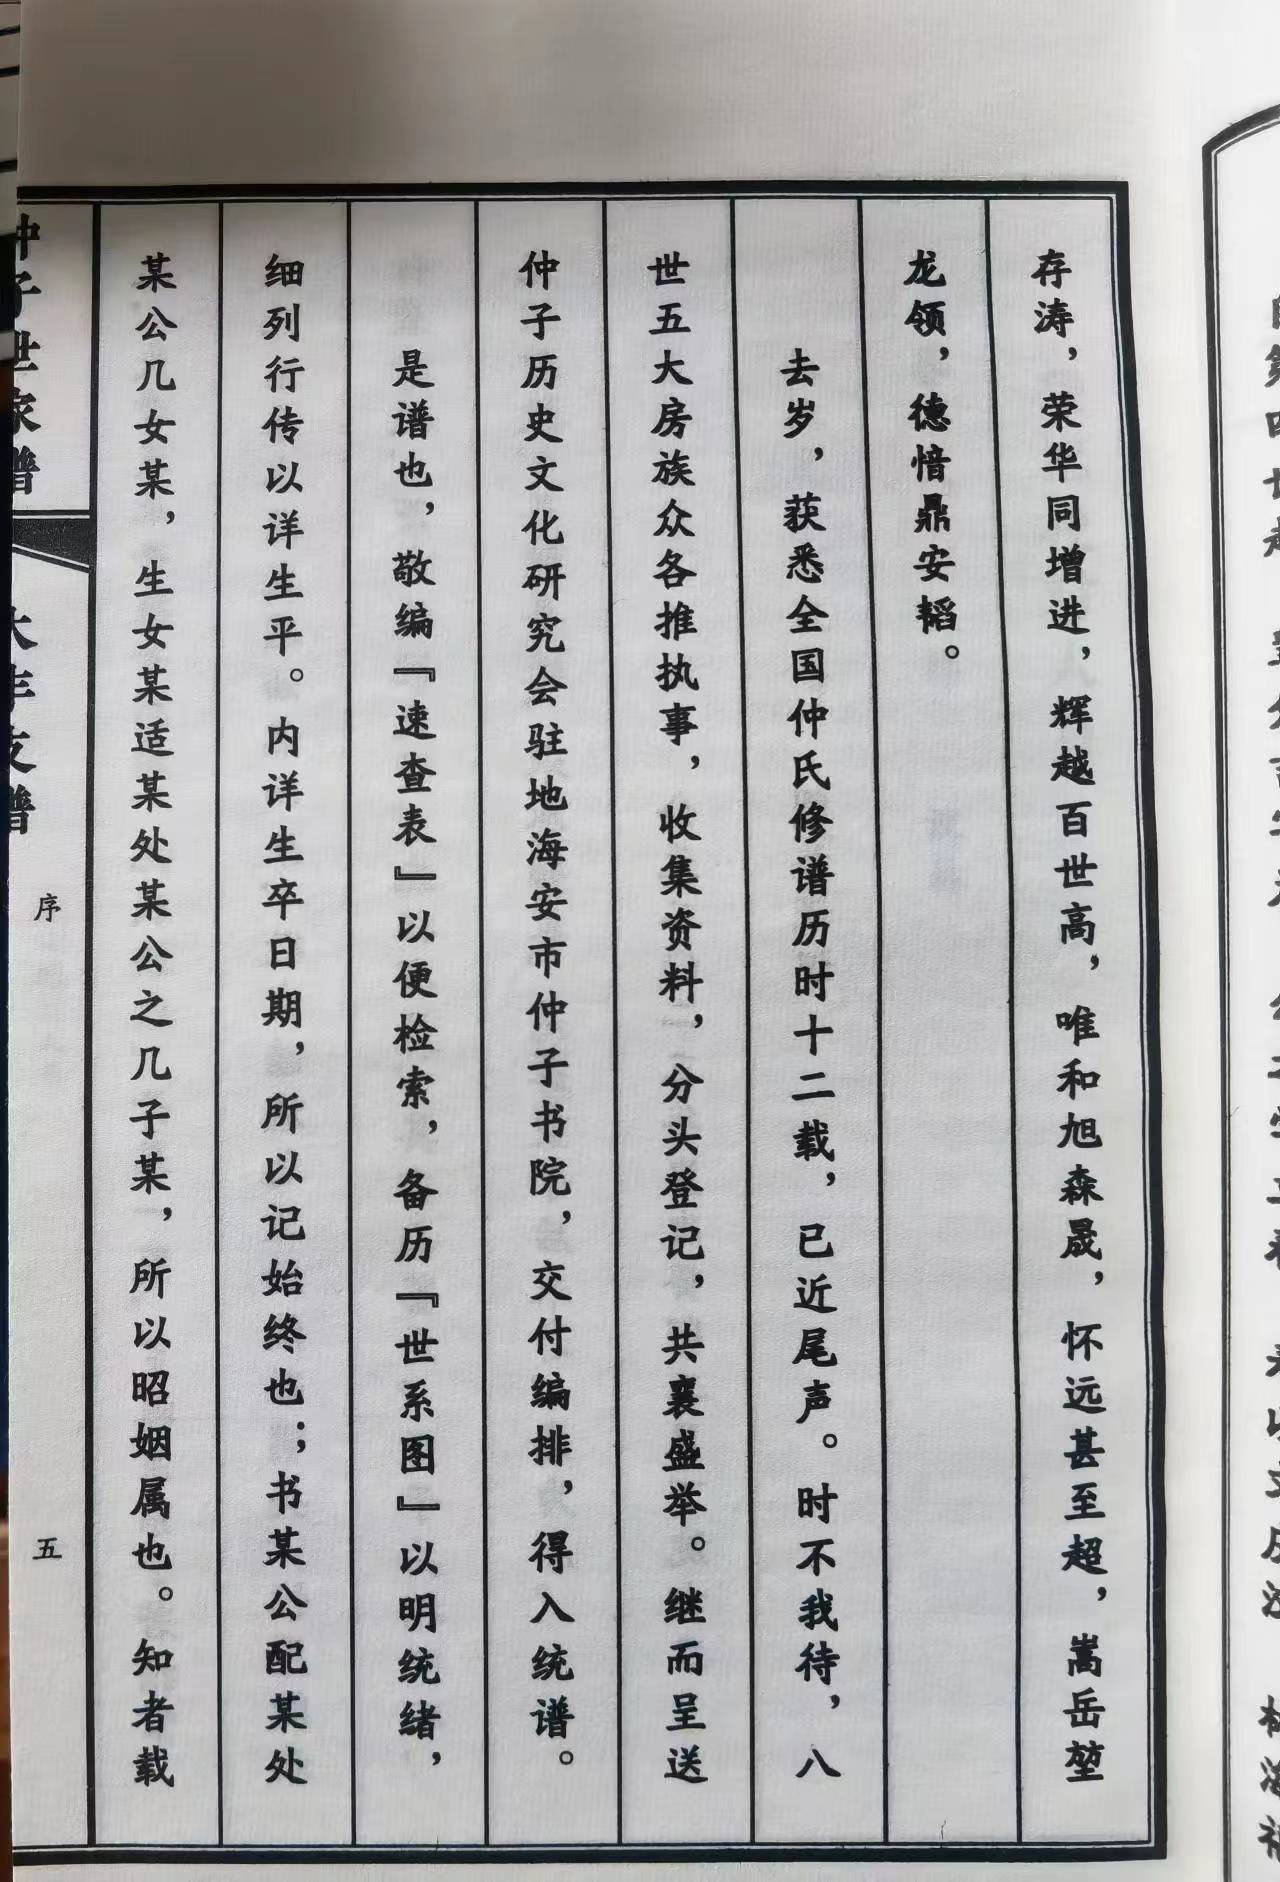 存涛，荣华同增进，辉越百世高，唯和旭森晟，怀远甚至超，嵩岳堃
龙领，德愔鼎安韬。
去岁，获悉全国仲氏修谱历时十二载，已近尾声。时不我待，八
世五大房族众各推执事，收集资料，分头登记，共襄盛举。继而呈送
仲子历史文化研究会驻地海安市仲子书院，交付编排，得入统谱。
是谱也，敬编『速查表』以便检索，备历『世系图』以明统绪，
细列行传以详生平。内详生卒日期，所以记始终也；书某公配某处
某公几女某，生女某适某处某公之几子某，所以昭姻属也。知者载
仲子世家谱
支谱
序
五